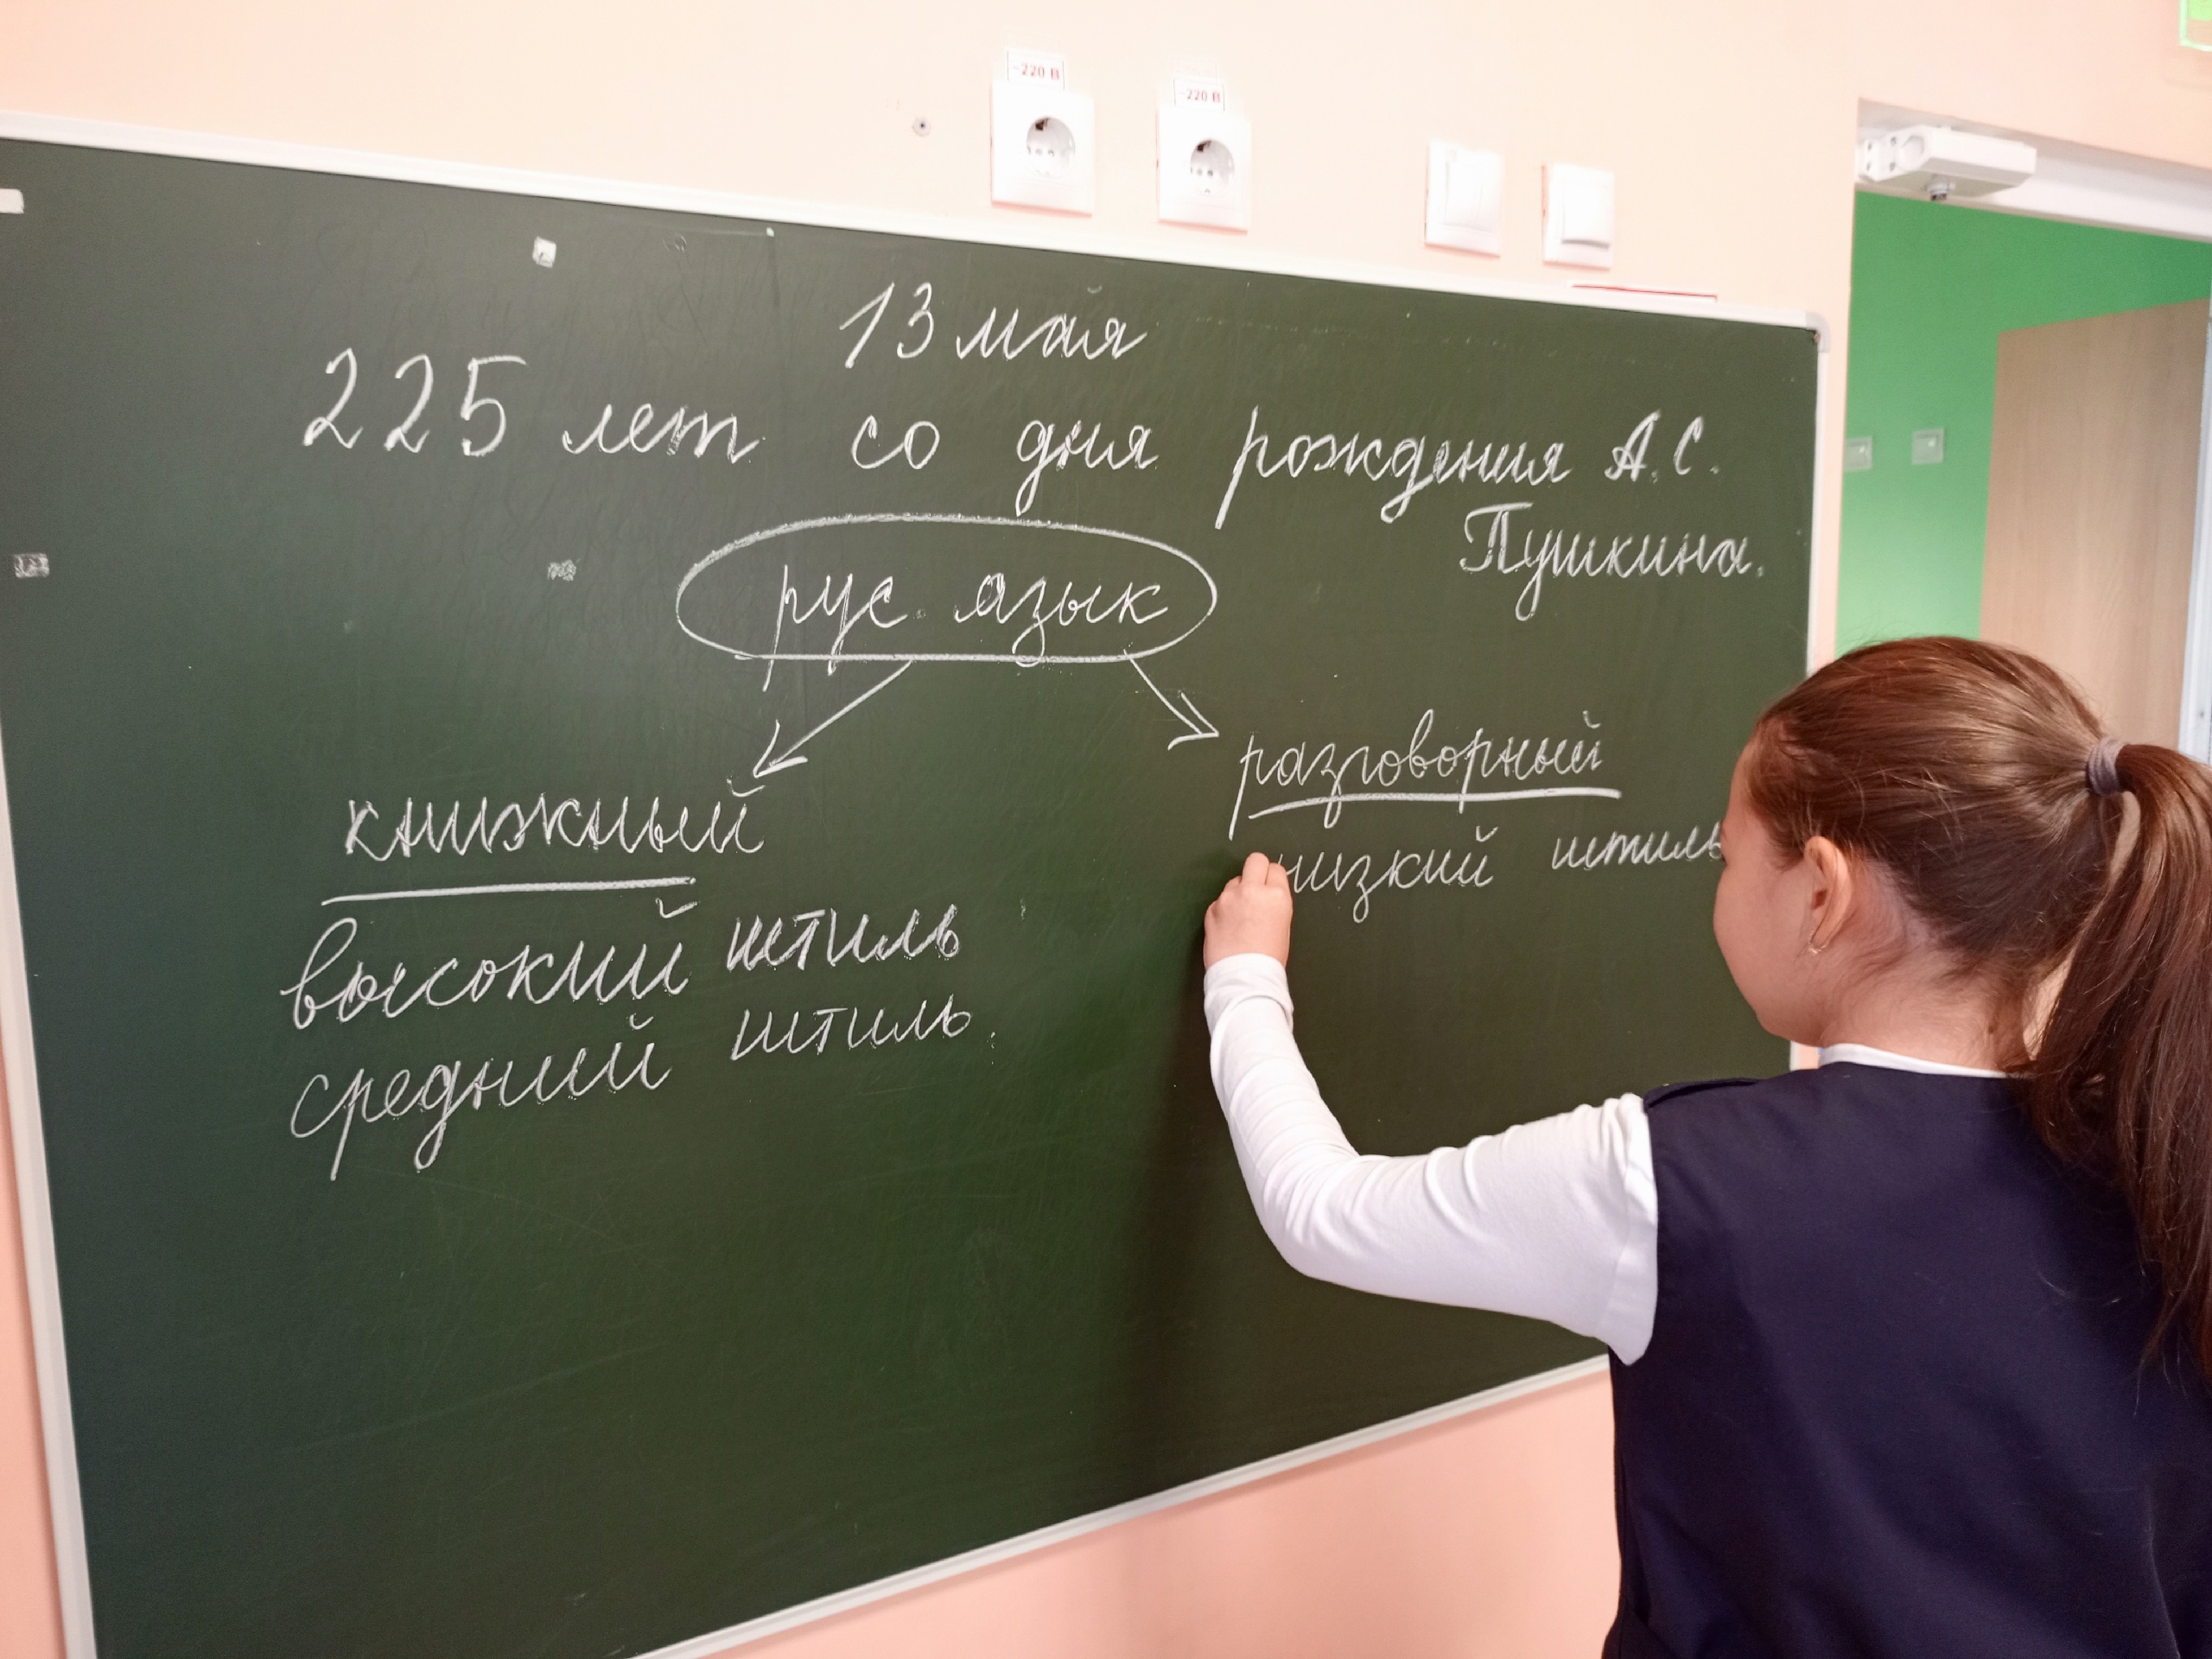 ~220 В
~220 В
13 мая
225 лет со дня рождения А.С.
Пушкина.
рус. язык
разговорный
низкий штиль
книжный
высокий штиль
средний штиль.